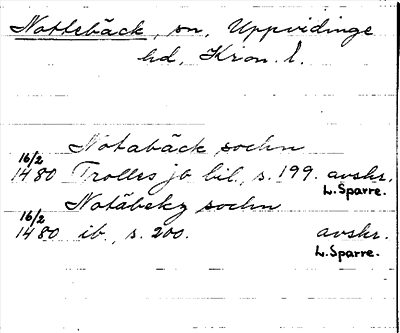 Nottebäck, sn, Uppvidinge
hd, Kron. l.
Notabäck sochn
16/2
1480 Trolles jb bil., s. 199. avskr.
L. Sparre.
Notäbekz sochn
16/2
1480 ib., s. 200. avskr.
L. Sparre.